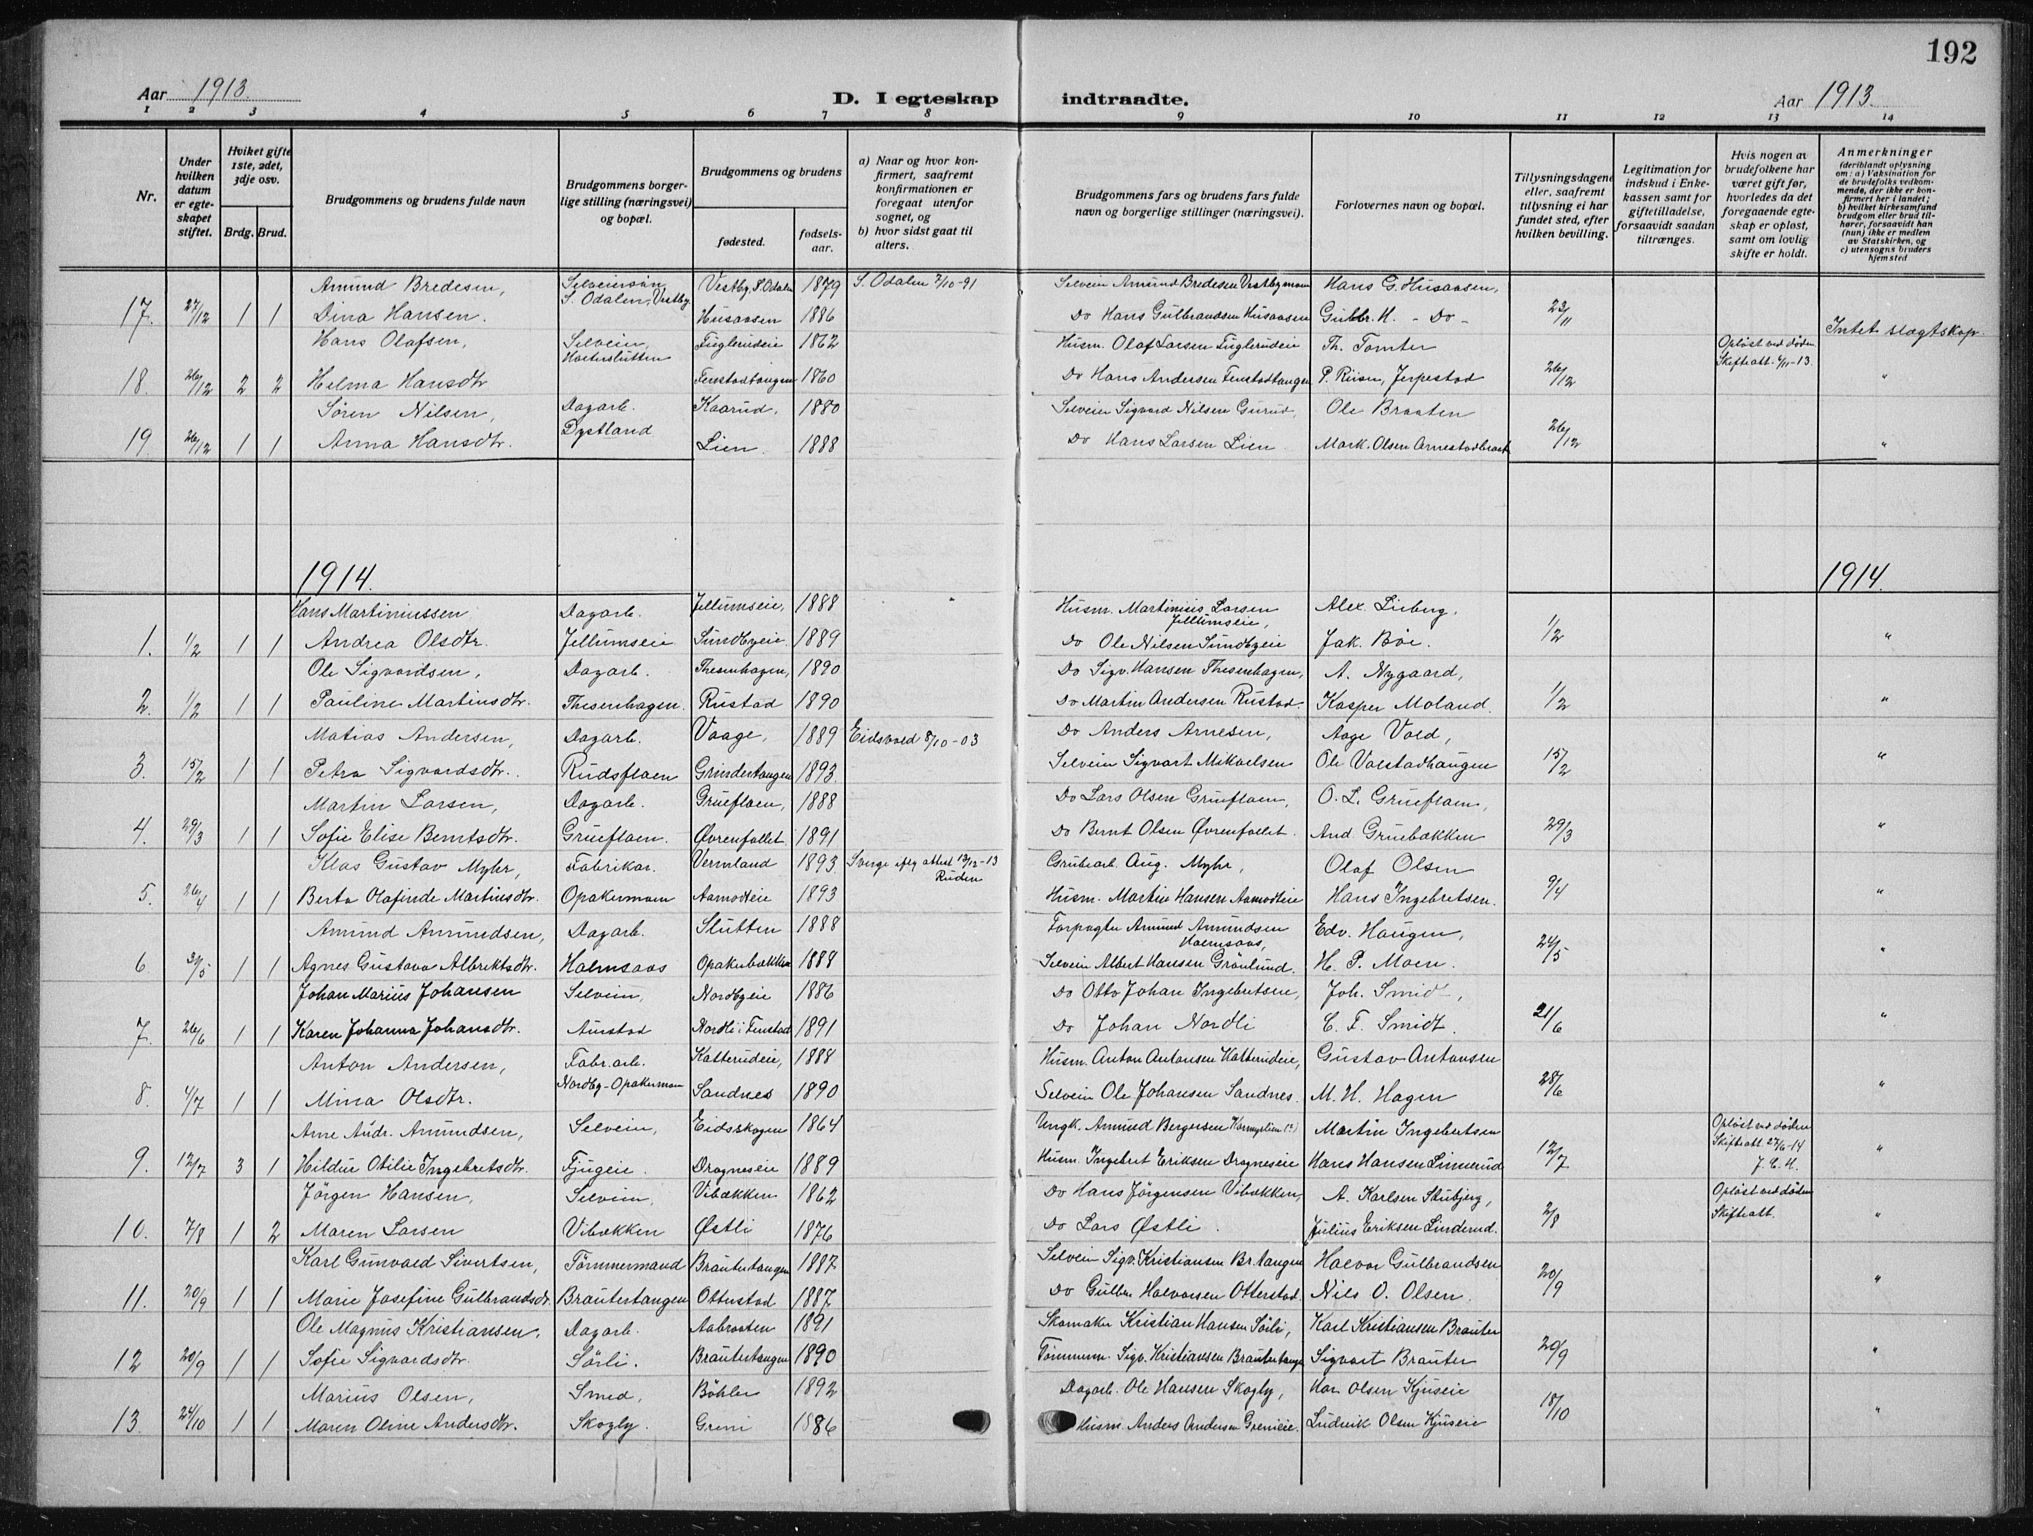 192
Aar 1913.
D. I egteskap indtraadte.
Aar 1913.
1 2 3 4 5 6 7 8 9 10 11 12 13 14
Nr.
Under hvilken datum er egteskapet stiftet.
Hvilket gifte 1ste, 2det, 3dje osv.
Brdg. Brud.
Brudgommens og brudens fulde navn
Brudgommens borgerlige stilling (næringsvei) og bopæl.
Brudgommens og brudens
fødested.
fødselsaar.
a) Naar og hvor konfirmert, saafremt konfirmationen er foregaat utenfor sognet, og
b) hvor sidst gaat til alters.
Brudgommens fars og brudens fars fulde navn og borgerlige stillinger (næringsvei).
Forlovernes navn og bopæl.
Tillysningsdagene eller, saafremt tillysning ei har fundet sted, efter hvilken bevilling.
Legitimation for indskud i Enkekassen samt for giftetilladelse, forsaavidt saadan tiltrænges.
Hvis nogen av brudefolkene har været gift før, hvorledes da det foregaaende egteskap er opløst, samt om lovlig skifte er holdt.
Anmerkninger
(deriblandt oplysning om: a) Vaksination for de brudefolks vedkommende, der ikke er konfirmert her i landet; b) hvilket kirkesamfund brudgom eller brud tilhører, forsaavidt han (hun) ikke er medlem av Statskirken, og c) utensogns bruders hjemsted
Amund Bredesen, Selveiersøn, Vestby, S. Odalen 1879 S. Odalen 2/10-91 Selveier Amund Bredesen Vestbymoen Hans G. Husaasen,
17. 27/12 1 1 Dina Hansen. S. Odalen, Vestby Husaasen 1886 Do Hans Gulbrandsen Husaasen Gulbr. H. - Do - 23/11 Intet slægtskap.
Hans Olafsen, Selveier, Fuglerudeie 1862 Husm. Olaf Larsen Fuglerudeie Th. Tomter Opløst ved døden
18. 26/12 2 2 Helma Hansdtr Holterslutten Fenstadtangen 1860 Do Hans Andersen Fenstadtangen P. Riisen, Jerpestad 26/12 Skifteatt. 6/11-13. "
Søren Nilsen, Dagarb. Kaarud, 1880 Selveier Sigvard Nilsen Gurud, Ole Braaten
19 26/12 1 1 Anna Hansdtr. Dystland Lien. 1888 Do Hans Larsen Lien Mark. Olsen Arnestadbraat. 26/12 "
1914. 1914.
Hans Martiniussen Dagarb. Jellumseie, 1888 Husm. Martinius Larsen Jellumseie, Alex. Lieberg.
1. 1/2 1 1 Andrea Olsdtr. Jellumseie Sundbyeie. 1889 Do Ole Nilsen Sundbyeie Jak. Bøe. 1/2 "
Ole Sigvardsen, Dagarb. Thesenhagen, 1890 Do Sigv. Hansen Thesenhagen, A. Nygaard,
2. 1/2 1 1 Pauline Martinsdtr. Thesenhagen. Rustad 1890 Do Martin Andersen Rustad. Kasper Moland. 1/2 "
Matias Andersen, Dagarb. Vaage, 1889 Eidsvold 8/10-03 Do Anders Arnesen, Aage Vold,
3. 15/2 1 1 Petra Sigvardsdtr. Rudsflaen Grindertangen 1893. Selveier Sigvart Mikaelsen Ole Volstadhaugen 15/2 "
Martin Larsen, Dagarb. Grueflaen, 1888 Do Lars Olsen Grueflaen, O. L. Grueflaen,
4. 29/3 1 1 Sofie Elise Berntsdtr. Grueflaen. Øvrenfallet. 1891 Do Bernt Olsen Øvrenfallet. And. Gruebækken 29/3 "
Klas Gustav Myhr, Fabrikar. Vermland 1893 Sverige iflg attest 12/12-13 Gruberarb. Aug. Myhr, Olaf Olsen
5. 26/4 1 1 Berta Olafinde Martinsdtr. Opakermoen Aamodteie 1893 Ruden Husm. Martin Hansen Aamodteie Hans Ingebretsen. 9/4 "
Amund Amundsen, Dagarb. Slutten 1888 Forpagter Amund Amundsen Holmsaas, Edv. Haugen,
6 31/5 1 1 Agnes Gustava Albriktsdtr. Holmsaas Opakerbækken 1888 Selveier Albert Hansen Grønlund. H. P. Moen. 24/5 "
Johan Marius Johansen Selveier, Nordbyeie 1886 Do Otto Johan Ingebretsen, Joh. Smidt,
7. 26/6 1 1 Karen Johanna Johansdtr. Aurstad Nordli i Fenstad 1891 Do Johan Nordli C. F. Smidt. 21/6 "
Anton Andersen, Fabr.arb. Katterudeie, 1888 Husm. Anton Antonsen Katterudeie, Gustav Antonsen
8. 4/7 1 1 Mina Olsdtr. Nordby-Opakermoen Sandnes 1890 Selveier Ole Johansen Sandnes. M. H. Hagen 28/6 "
Arne Andr. Amundsen, Selveier, Eidsskogen 1864 Ungk. Amund Bergersen Martin Ingebretsen Opløst ved døden
9. 12/7 3 1 Hildur Otilie Ingebretsdtr. Fjugeie. Dragneseie 1889 Husm. Ingebret Eriksen Dragneseie Hans Hansen Linnerud 12/7 Skifteatt. 27/6-14 J. C. H. "
Jørgen Hansen, Selveier, Vibækken 1862 Do Hans Jørgensen Vibækken, A. Karlsen Skibjerg, Opløst ved døden
10. 7/8 1 2 Maren Larsen Vibækken Østli 1876 Do Lars Østli. Julius Eriksen Linderud. 2/8 Skifteatt. "
Karl Gunvald Sivertsen, Tømmermand Brautertangen 1887 Selveier Sigv. Kristiansen Br.tangen Halvor Gulbrandsen
11. 20/9 1 1 Marie Josefine Gulbrandsdtr. Brautertangen Otterstad 1887 Do Gulbr. Halvorsen Otterstad. Nils O. Olsen. 20/9 "
Ole Magnus Kristiansen, Dagarb. Aabraaten 1891 Skomaker Kristian Hansen Sørli, Karl Kristiansen Brauter
12 20/9 1 1 Sofie Sigvardsdtr. Sørli. Brautertangen 1890 Tømmerm. Sigv. Kristiansen Brautertangen Sigvart Brauter 20/9 "
Marius Olsen, Smed, Bøhler 1892 Dagarb. Ole Hansen Skogby, Kar. Olsen Kjuseie
13. 24/10 1 1 Maren Oline Andersdtr. Skogby. Greni 1886 Husm. Anders Andersen Grenieie. Ludvik Olsen Kjuseie 18/10 "